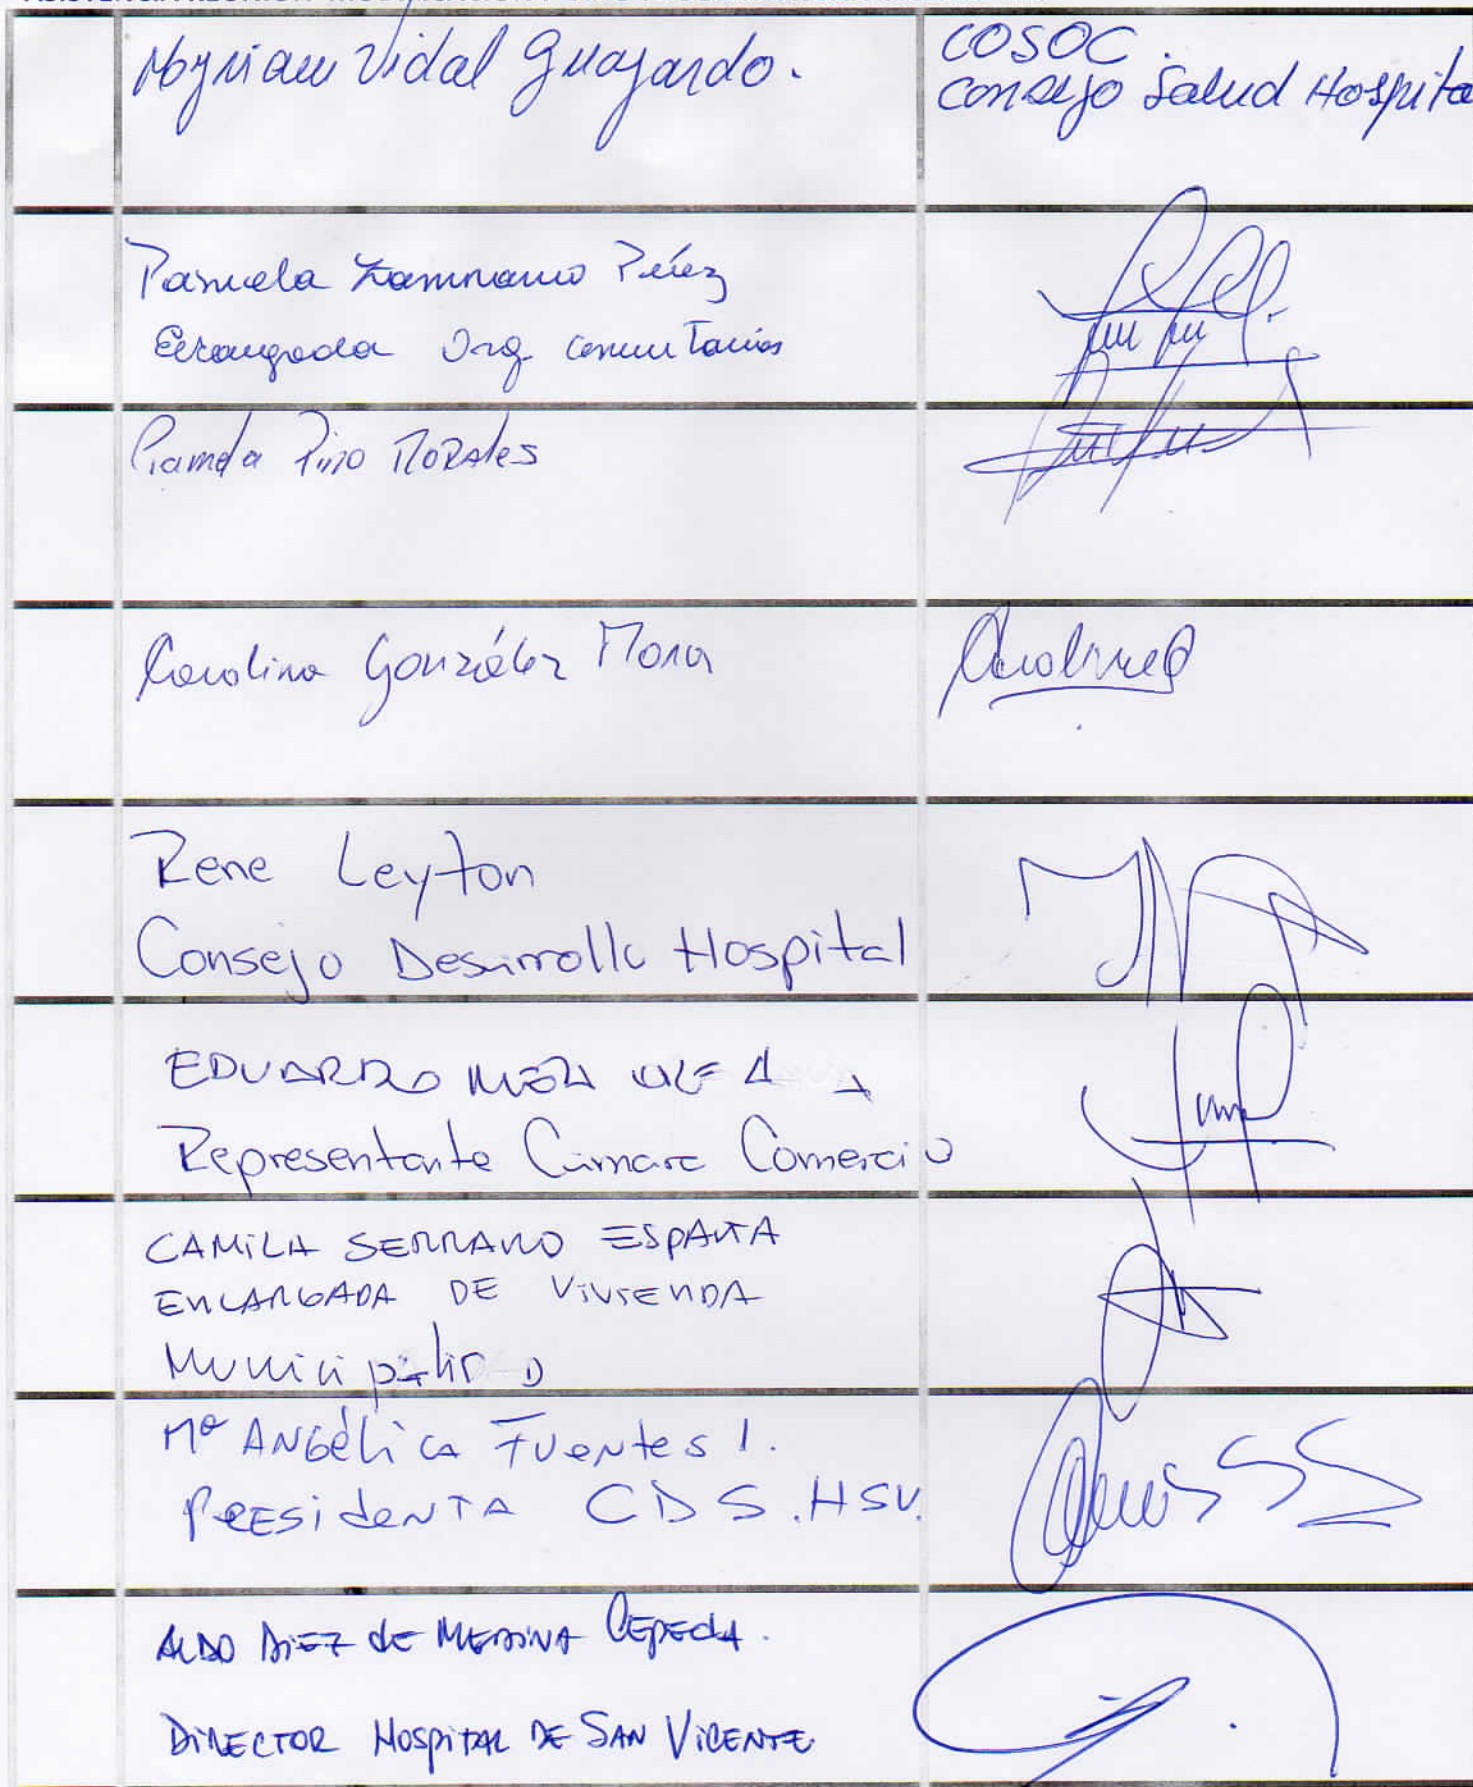 Myriam Vidal Guajardo.
COSOC.
Consejo Salud Hospital
Pamela Zamorano Pérez
Encargada Org Comunitarias
Pamela Pino MORALES
Carolina González Mora
Carolina
Rene Leyton
Consejo Desarrollo Hospital
EDUARDO
Representante Camara Comercio
CAMILA SERRANO ESPAÑA
ENCARGADA DE VIVIENDA
Municipalidad
Mª ANGélica Fuentes I.
PRESidENTA CDS.HSV.
ALDO DIEZ de MEDINA CEPEDA.
DIRECTOR HOSPITAL DE SAN VICENTE